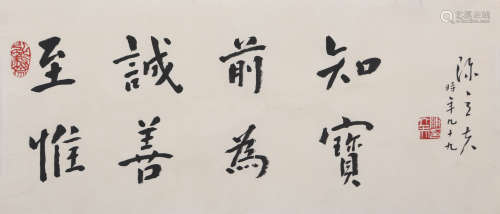 至誠前知
惟善為寶
陳立夫
時年九十九